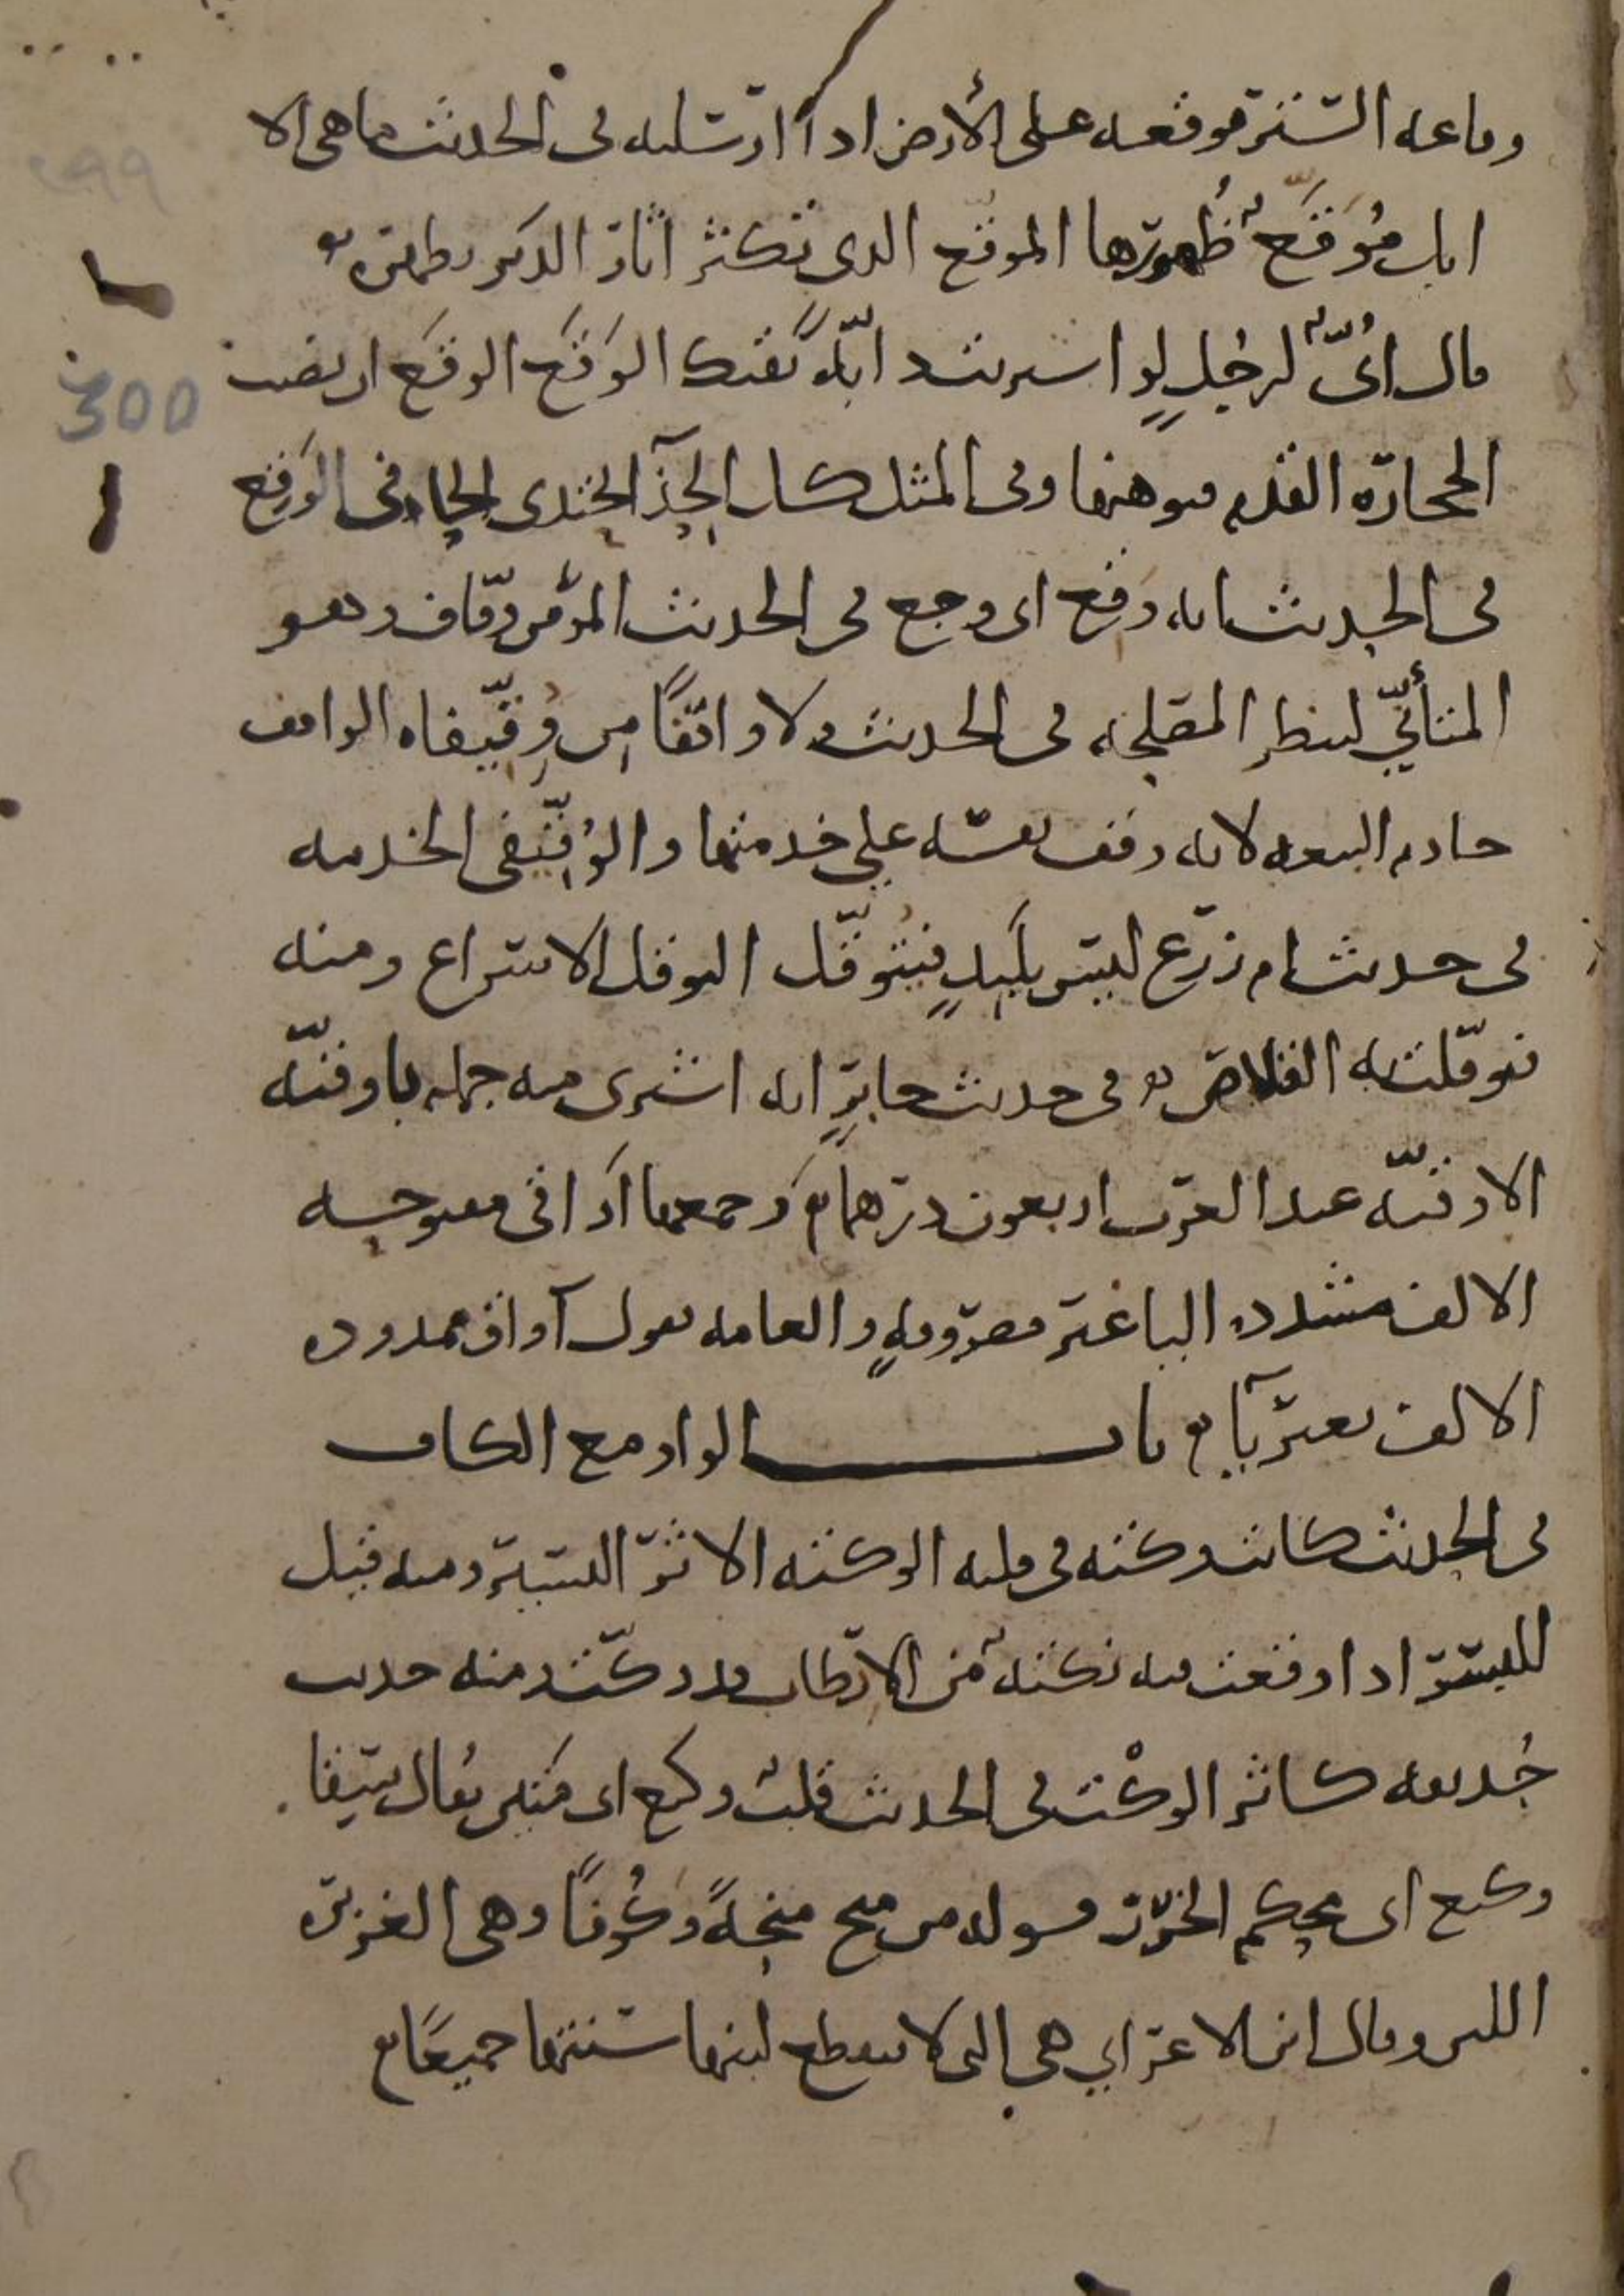 وقاعه الستر موقعه على الأرض اذا ارسلته فى الحديث ما هى الا
ابل مُوَقَّعٌ ظُهورها الموقع الذى تكثر اثار الدبر بظهره
قال اُبىّ لرجُلٍ لو اشتريت دابّةً تقيك الوَقَع الوقع ان تصيب
الحجارة القدم فتوهنها وفى المثل كل الحِذاء يحتذى الحافى الوَقِع
فى الحديث ابن اخى وَقِع اى وجع فى الحديث المؤمن وقّاف وهو
المتأنّي لينظر المصلحة فى الحديث ولا واقفًا مِن وِقِّيفاه الواقف
خادم البيعه لانه وقف نفسه على خدمتها والوِقِّيفى الخدمه
فى حديث ام زرع ليس بلَبِدٍ فيتوقّل التوقل الاسراع ومنه
توقّلت به القلاص فى حديث جابرٍ انه اشترى منه جمله باوقيّه
الاوقيّه عند العرب اربعون درهما وَجمعها أَواقى مفتوحه
الالف مشدده اليا غير مصروفهٍ والعامه تقول آواق ممدوده
الالف بغير يآ باب الواو مع الكاف
فى الحديث كانت وكته فى قلبه الوكته الاثر اليسير ومنه قيل
للبسر اذا وقعت فيه نكتةٌ من الارطاب قد وكّت ومنه حديث
حُذيفه كاثر الوكْت فى الحديث قلب وكيع اى متين يُقال سِقا
وكيع اى محكم الخرز قوله من منح منحةً وَكُوفًا وهى الغزيره
اللبن وقال ابن الاعرابي هى التى لا ينقطع لبنها سنتها جميعًا
300